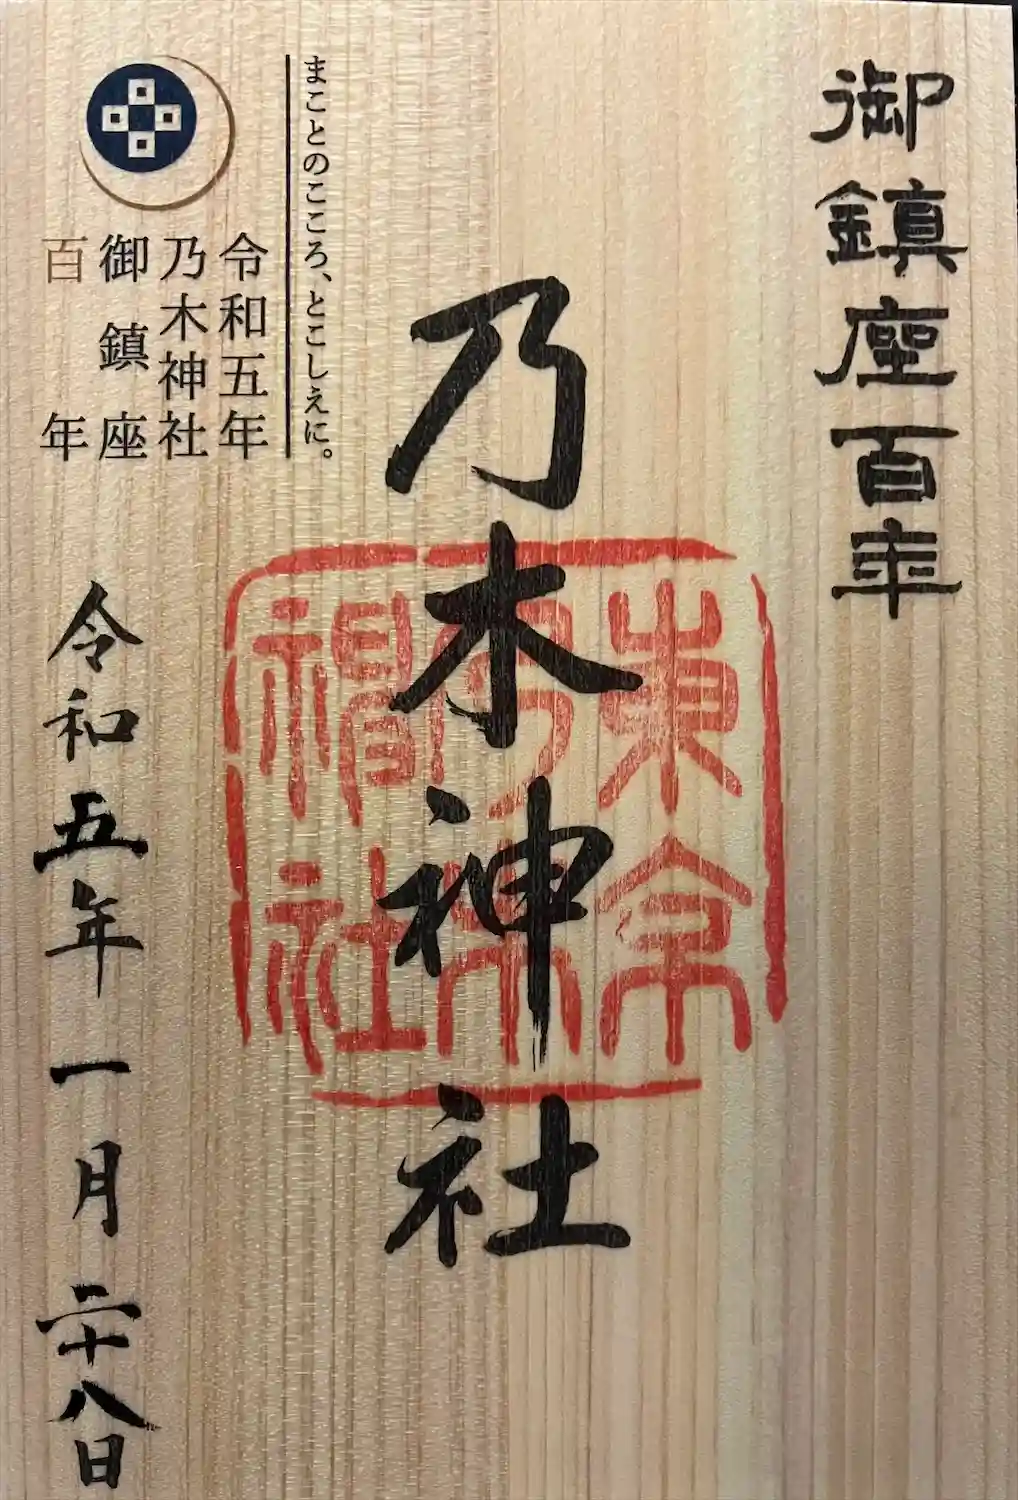 御鎮座百年
乃木神社
東京
乃木
神社
まことのこころ、とこしえに。
令和五年
乃木神社
御鎮座
百年
令和五年一月二十八日